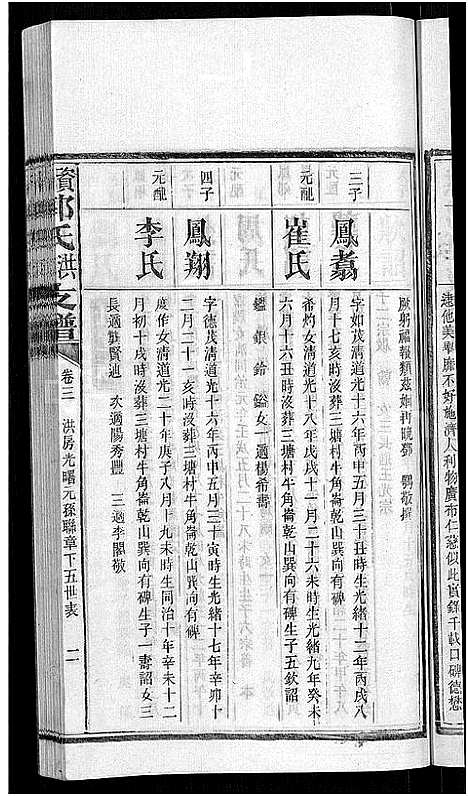 逮他美舉靡不好施濟人利物廣布仁慈似此實錄千載口碑德懋
厥躬福報類茲姻冉曉鄧 鶚敬撰
三子
鳳翥
字如茂清道光十六年丙申五月三十丑時生光緒十二年丙戌八
月十七亥時沒葬三塘村牛角崙乾山巽向有碑
元配
崔氏
希灼女清道光十八年戊戌十一月二十六未時生光緒九年癸未
六月十六丑時沒葬三塘村牛角崙乾山巽向有碑生子五欽詔
鑑 銀 鈴 鎰女一適楊希書
四子
鳳翔
字德茂清道光十六年丙申五月三十寅時生光緒十七年辛卯十
二月二十一亥時沒葬三塘村牛角崙乾山巽向有碑
元配
李氏
庭作女清道光二十年庚子八月十九未時生同治十年辛未十二
月初十戌時沒葬三塘村牛角崙乾山巽向有碑生子一壽詔女三
長適龔賢迪 次適陽秀豐 三適李閣敬
資邱氏洪之譜
卷三 洪房光曙元孫聯章下五世表 二